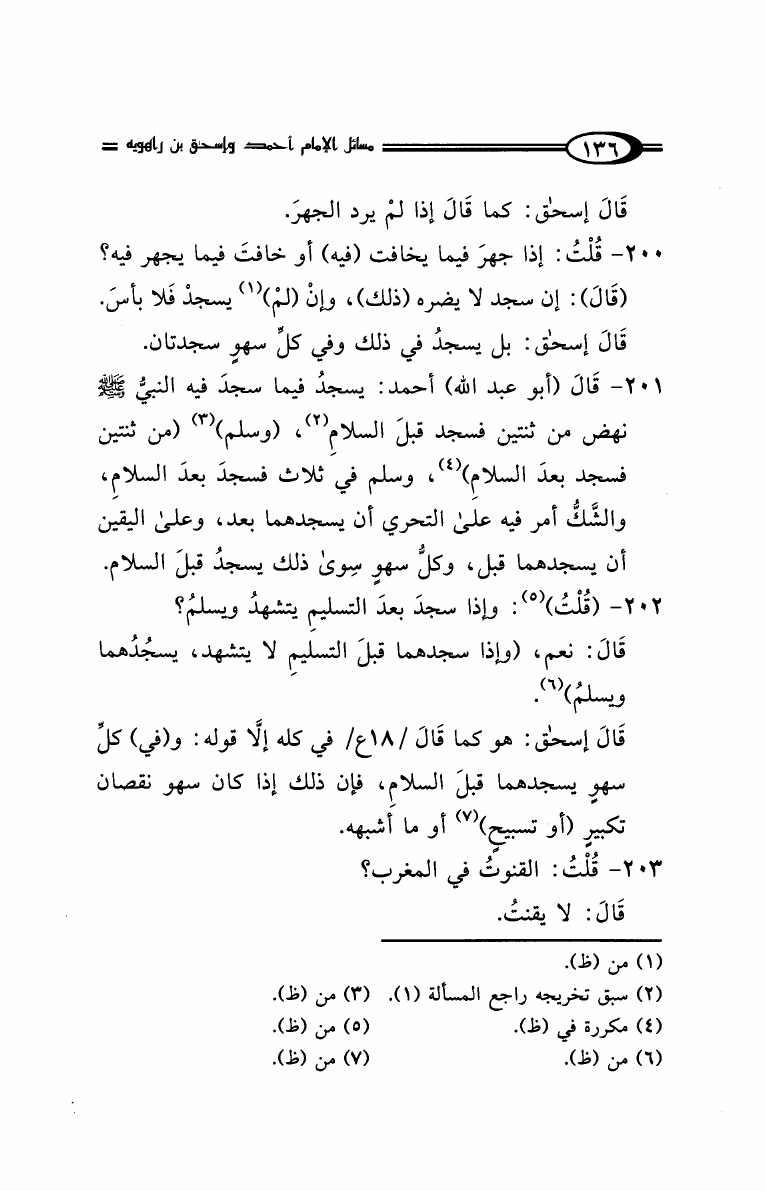 ١٣٦ مسائل الإمام أحمد وإسحق بن راهويه
قَالَ إسحق: كما قَالَ إذا لمْ يرد الجهرَ.
٢٠٠- قُلْتُ: إذا جهرَ فيما يخافت (فيه) أو خافتَ فيما يجهر فيه؟
(قَالَ): إن سجد لا يضره (ذلك)، وإنْ (لمْ)(١) يسجدْ فَلا بأسَ.
قَالَ إسحٰق: بل يسجدُ في ذلك وفي كلِّ سهوٍ سجدتان.
٢٠١- قَالَ (أبو عبد الله) أحمد: يسجدُ فيما سجدَ فيه النبيُّ ﷺ
نهض من ثنتين فسجد قبلَ السلامِ(٢)، (وسلم)(٣) (من ثنتين
فسجد بعدَ السلامِ)(٤)، وسلم في ثلاث فسجدَ بعدَ السلامِ،
والشَّكُّ أمر فيه علىٰ التحري أن يسجدهما بعد، وعلىٰ اليقين
أن يسجدهما قبل، وكلُّ سهوٍ سِوىٰ ذلك يسجدُ قبلَ السلام.
٢٠٢- (قُلْتُ)(٥): وإذا سجدَ بعدَ التسليمِ يتشهدُ ويسلمُ؟
قَالَ: نعم، (وإذا سجدهما قبلَ التسليمِ لا يتشهد، يسجُدُهما
ويسلمُ)(٦).
قَالَ إسحٰق: هو كما قَالَ /١٨ع/ في كله إلَّا قوله: و(في) كلِّ
سهوٍ يسجدهما قبلَ السلامِ، فإن ذلك إذا كان سهو نقصان
تكبيرٍ (أو تسبيحٍ)(٧) أو ما أشبهه.
٢٠٣- قُلْتُ: القنوتُ في المغرب؟
قَالَ: لا يقنتُ.
(١) من (ظ).
(٢) سبق تخريجه راجع المسألة (١). (٣) من (ظ).
(٤) مكررة في (ظ). (٥) من (ظ).
(٦) من (ظ). (٧) من (ظ).